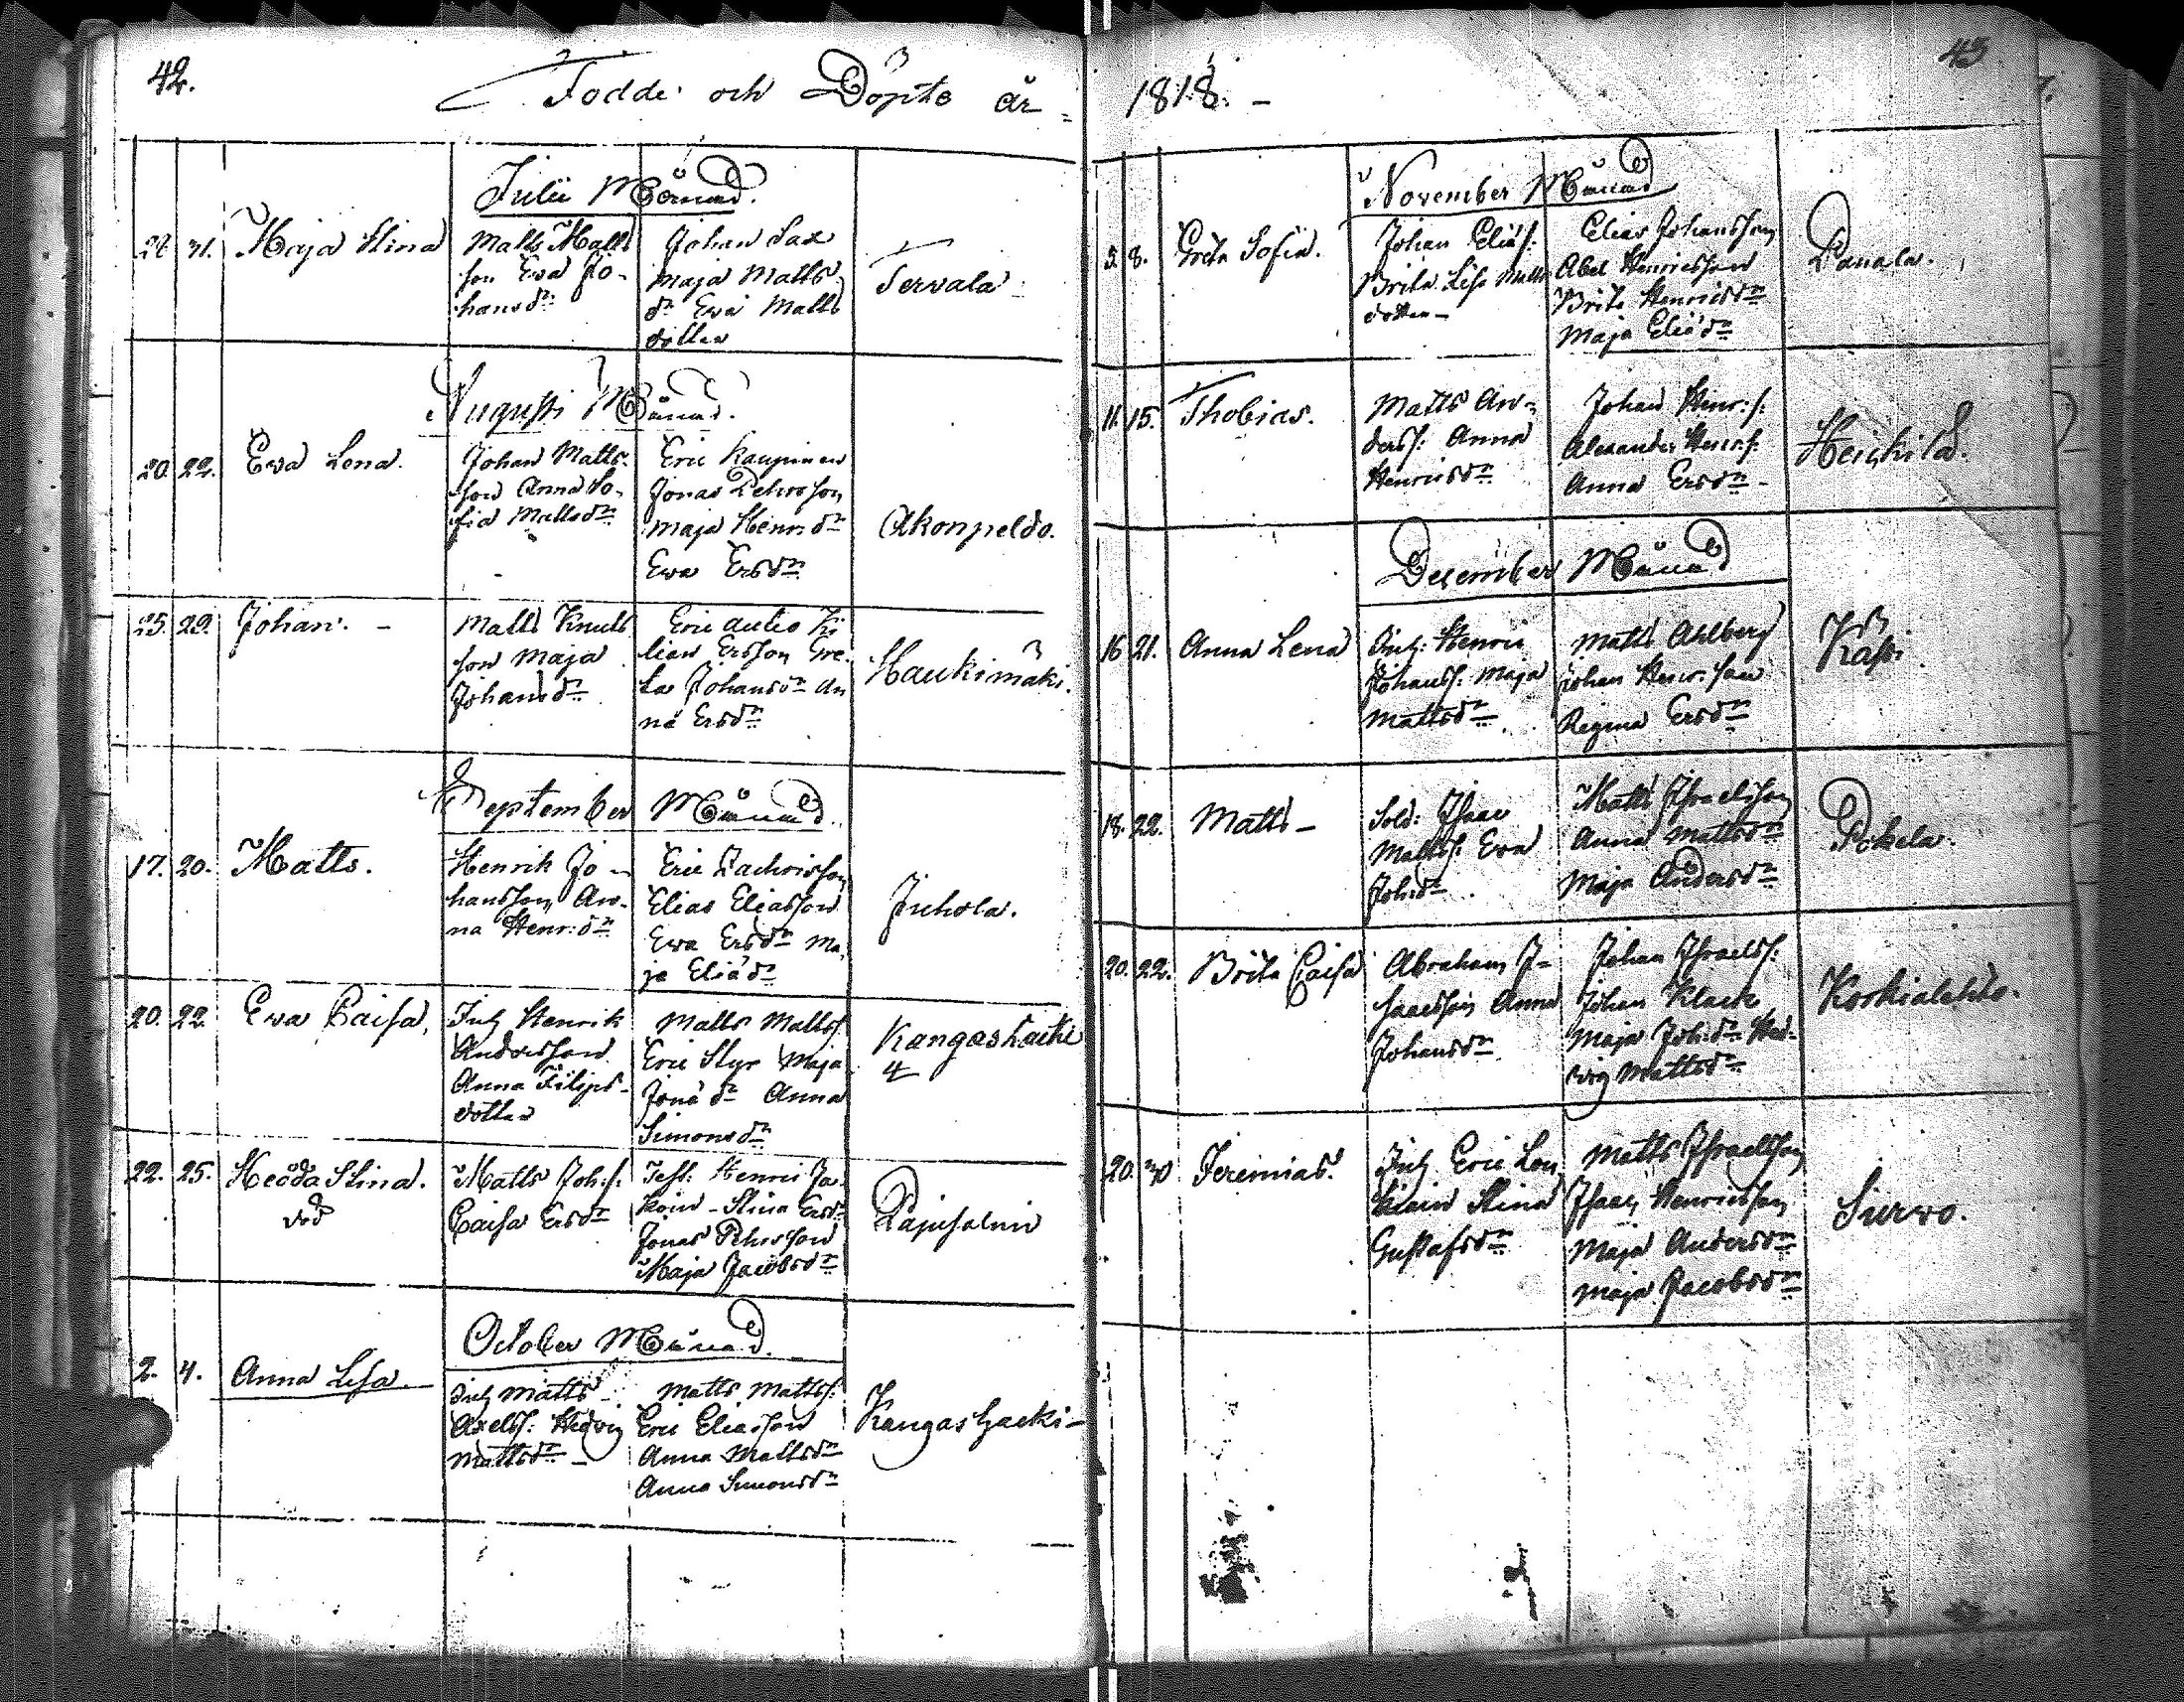 42.
Födde och Döpte år
Julii Månad.
31. Maja Stina
Matts Matts
son Eva Jo-
hansdr
Johan Sax
Maja Matts
dr Eva Matts
dotter
Tervala
Augusti Månad.
20. 22. Eva Lena.
Johan Matts
son Anna So-
fia Mattsdr
Eric Kaupinen
Jonas Pehrsson
Maja Henr. dr
Ewa Ersdr
Akonpeldo.
25. 29. Johan. -
Matts Knuts
son Maja
Johansdr
Eric Autio Ki
lian Ersson Gre-
ta Johansdr An
na Ersdr
Haukimäki.
September Månad.
17. 20. Matts.
Henrik Jo-
hansson An-
na Henr: dr
Eric Zachrisson
Elias Eliasson
Ewa Ersdr Ma-
ja Eliædr
Juhola.
20. 22. Eva Caisa.
Inh Henrik
Andersson
Anna Filips-
dotter
Matts Mattss.
Eric Styr Maja
Jonædr Anna
Simonsdr
Kangashäcki
4
22. 25. Hedda Stina.
död
Matts Joh.s.
Caisa Ersdr
Henric
Stina Ersdr
Jonas Pehrsson
Maja Jacobsdr
Pajusalmi
October Månad.
2. 4. Anna Lisa.
Inh Matts
Axelss: Hedvig
Mattsdr -
Matts Mattss:
Eric Eliasson
Anna Mattsdr
Anna Simonsdr
Kangashäcki -
43
1818. -
November Månad
5. 8. Greta Sofia.
Johan Eliæs.
Brita Lisa Matts
dotter -
Elias Johansson
Abel Henricsson
Brita Henricsdr
Maja Eliædr
Panala.
11. 15. Thobias.
Matts An-
derss. Anna
Henricsdr
Johan Henr: s.
Alexander Henr.s.
Anna Ersdr -
Heickilä.
December Månad
16 21. Anna Lena
Inh: Henric
Johanss. Maja
Mattsdr
Matts Ahlberg
Johan Henr. son
Regina Ersdr
18. 22. Matts -
Sold: Isaac
Mattss. Eva
Joh:dr
Matts Israelsson
Anna Mattsdr
Maja Andersdr
Pokela.
20. 22. Brita Caisa
Abraham I-
saacsson Anna
Johansdr
Johan Israelss.
Johan Klack
Maja Joh:dr Hed-
vig Mattsdr
Korkialehto.
20. 30 Jeremias.
Inh Eric Lon
kiain Stina
Gustafsdr
Matts Israelsson
Isaac Henricsson
Maja Andersdr
Maja Jacobsdr
Survo.